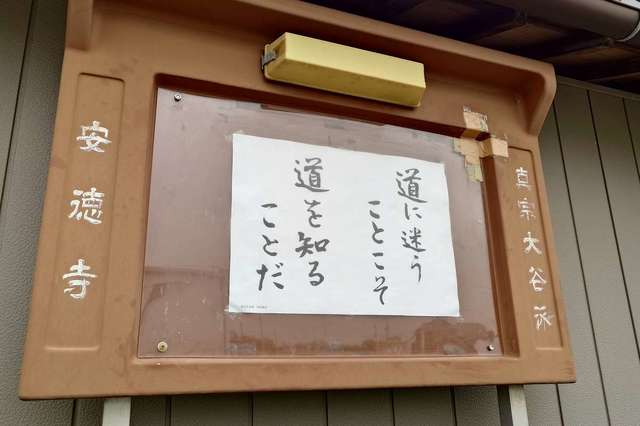 真宗大谷派
道に迷う
ことこそ
道を知る
ことだ
安徳寺